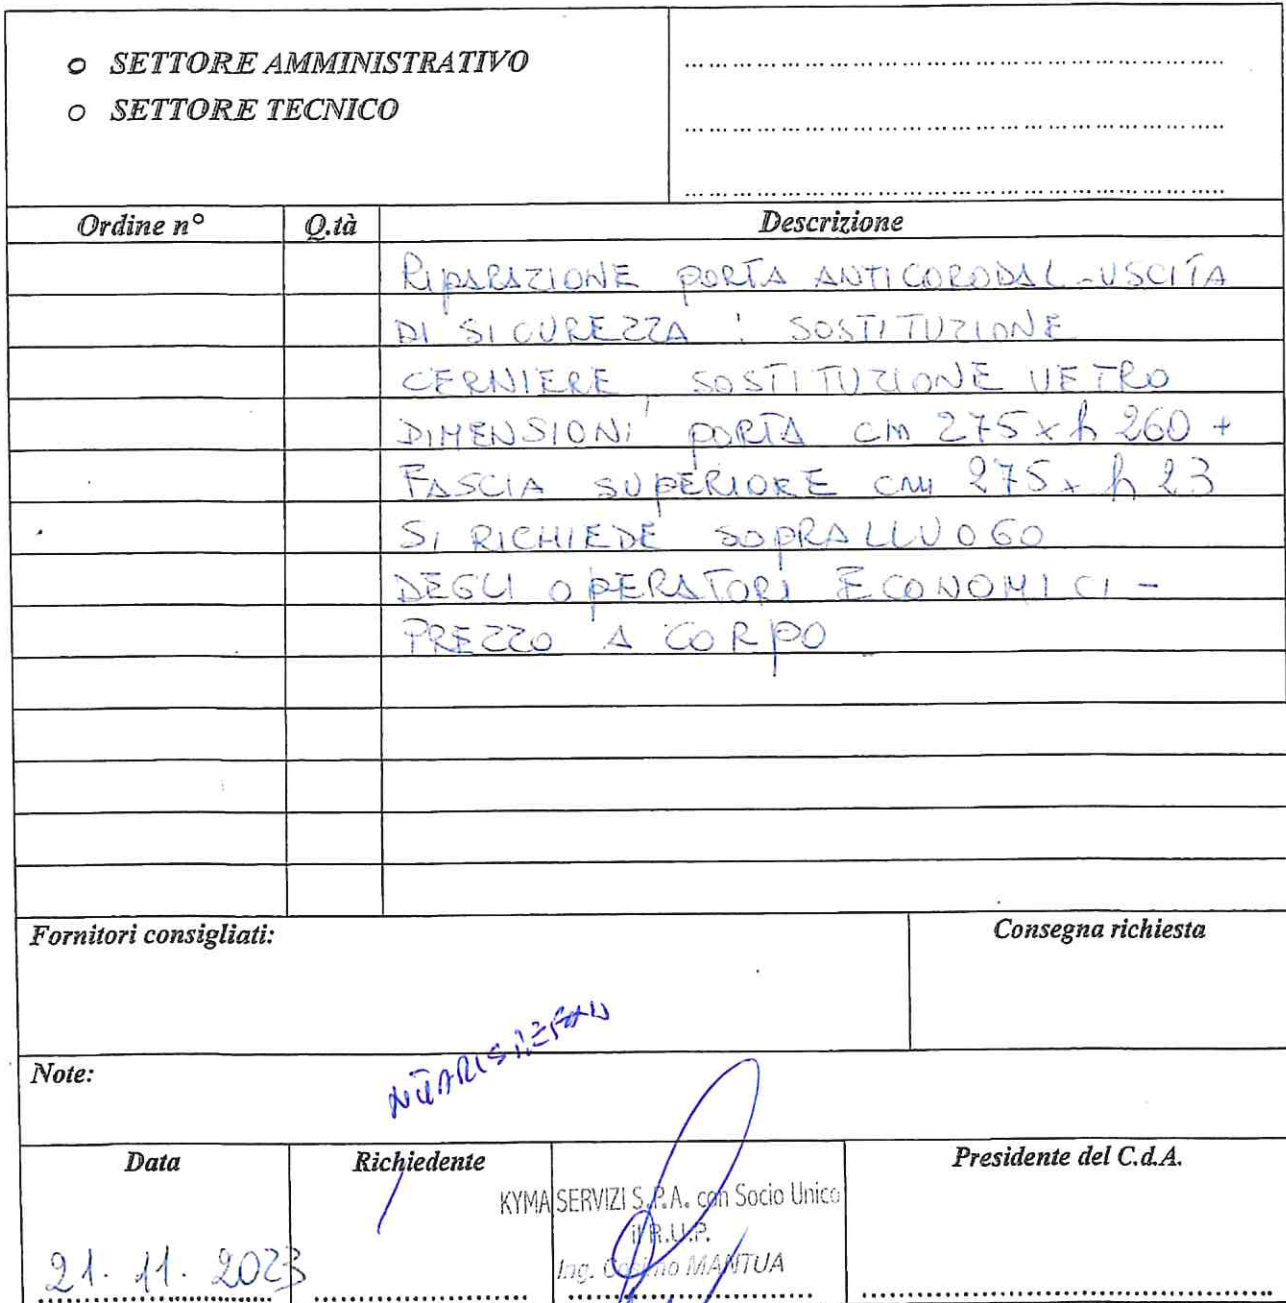 o SETTORE AMMINISTRATIVO
o SETTORE TECNICO
Ordine n° Q.tà Descrizione
RIPARAZIONE PORTA ANTICORODAL - USCITA
DI SICUREZZA : SOSTITUZIONE
CERNIERE, SOSTITUZIONE VETRO
DIMENSIONI PORTA cm 275 x h 260 +
FASCIA SUPERIORE cm 275 x h 23
SI RICHIEDE SOPRALLUOGO
DEGLI OPERATORI ECONOMICI -
PREZZO A CORPO
Fornitori consigliati: Consegna richiesta
Note:
Data Richiedente Presidente del C.d.A.
KYMA SERVIZI S.P.A. con Socio Unico
il R.U.P.
Ing. Cosimo MANTUA
21. 11. 2023